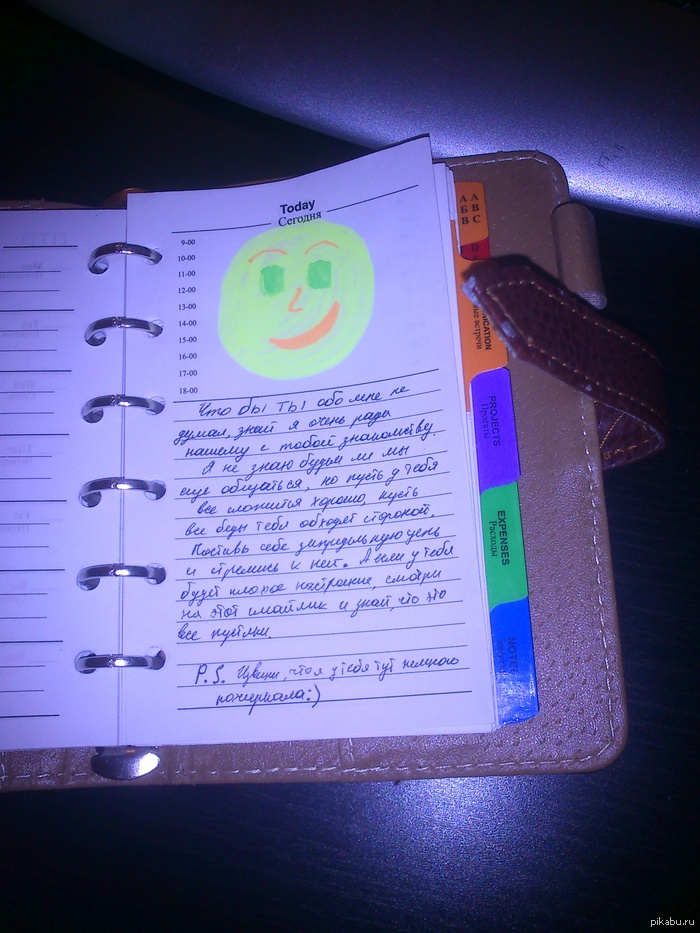 Today
Сегодня
9-00
10-00
11-00
12-00
13-00
14-00
15-00
16-00
17-00
18-00
Что бы ты обо мне не
думал, знай я очень рада
нашему с тобой знакомству.
Я не знаю будем ли мы
еще общаться, но пусть у тебя
все сложится хорошо, пусть
все беды тебя обходят стороной.
Поставь себе запредельную цель
и стремись к ней. А если у тебя
будет плохое настроение, смотри
на этот смайлик и знай, что это
все пустяки.
P.S. Извини, что я у тебя тут немного
почеркала:)
А Б В
A B C
PROJECTS
Проекты
EXPENSES
Расходы
NOTES
pikabu.ru